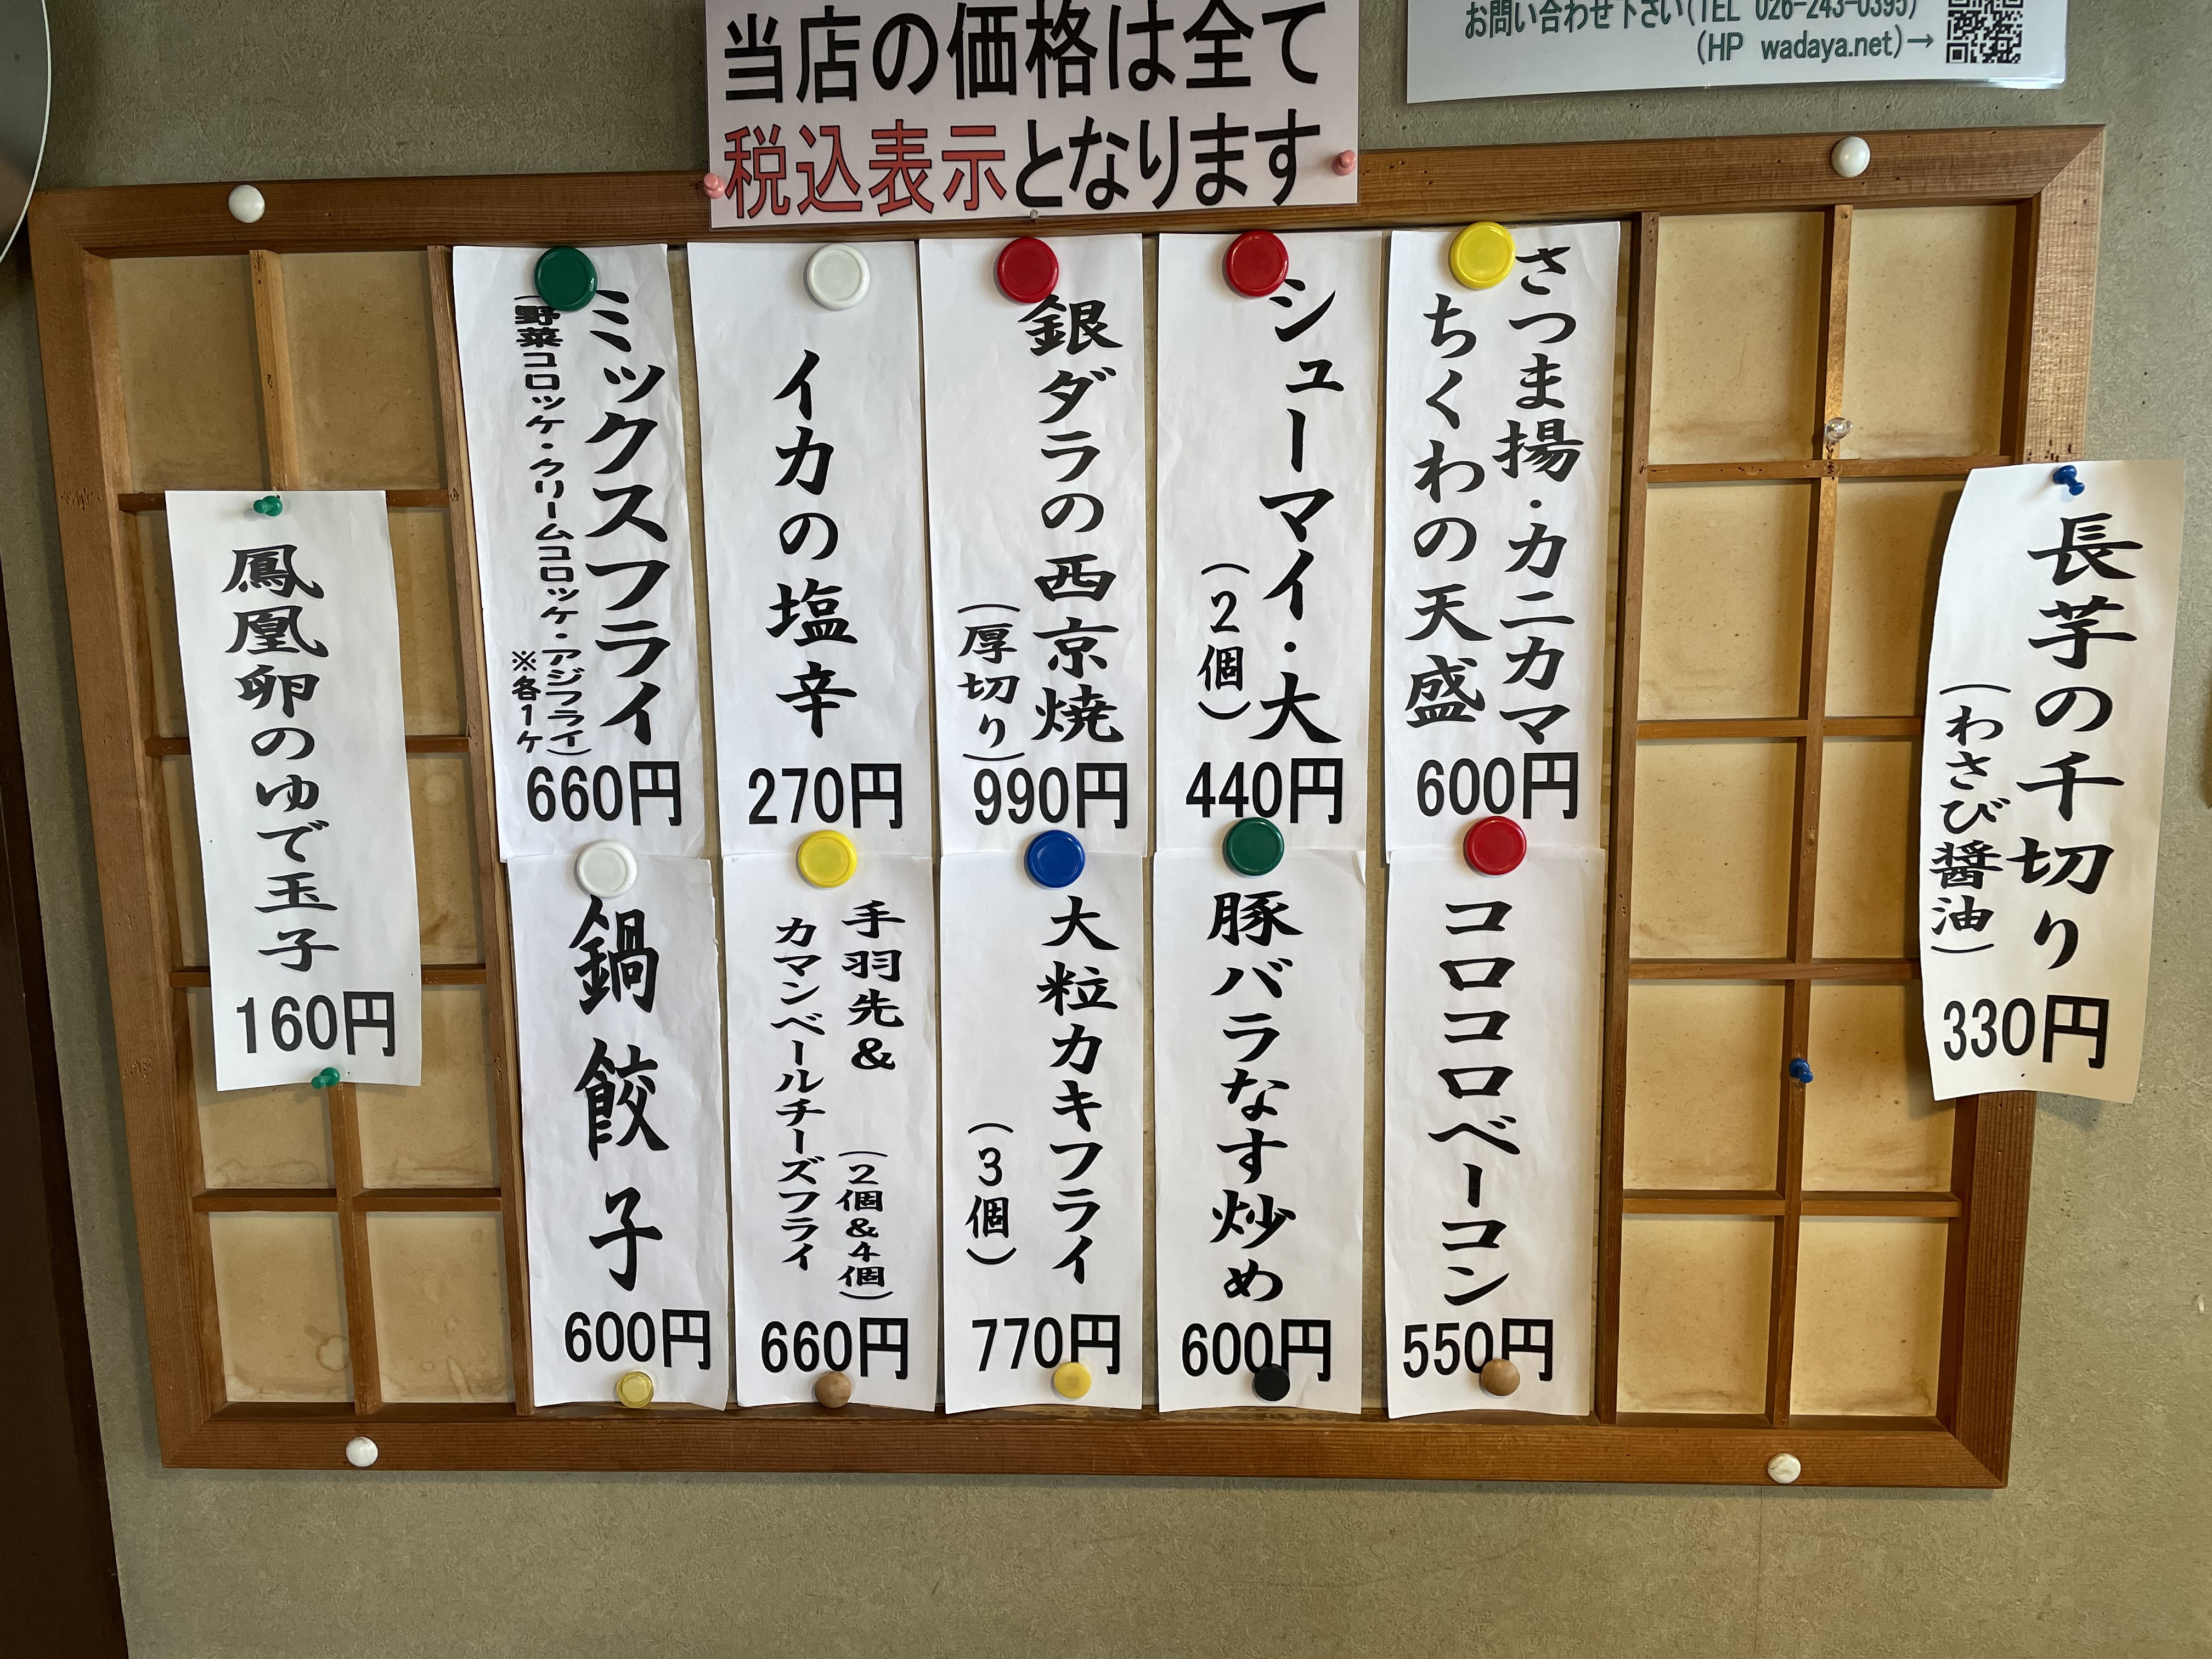 当店の価格は全て
税込表示となります
お問い合わせ下さい(TEL 026-243-0395)
(HP wadaya.net)→
長芋の千切り
(わさび醤油)
330円
さつま揚・カニカマ
ちくわの天盛
600円
シューマイ・大
(2個)
440円
銀ダラの西京焼
(厚切り)
990円
イカの塩辛
270円
ミックスフライ
(野菜コロッケ・クリームコロッケ・アジフライ)
※各1ケ
660円
コロコロベーコン
550円
豚バラなす炒め
600円
大粒カキフライ
(3個)
770円
手羽先&
カマンベールチーズフライ
(2個&4個)
660円
鍋餃子
600円
鳳凰卵のゆで玉子
160円